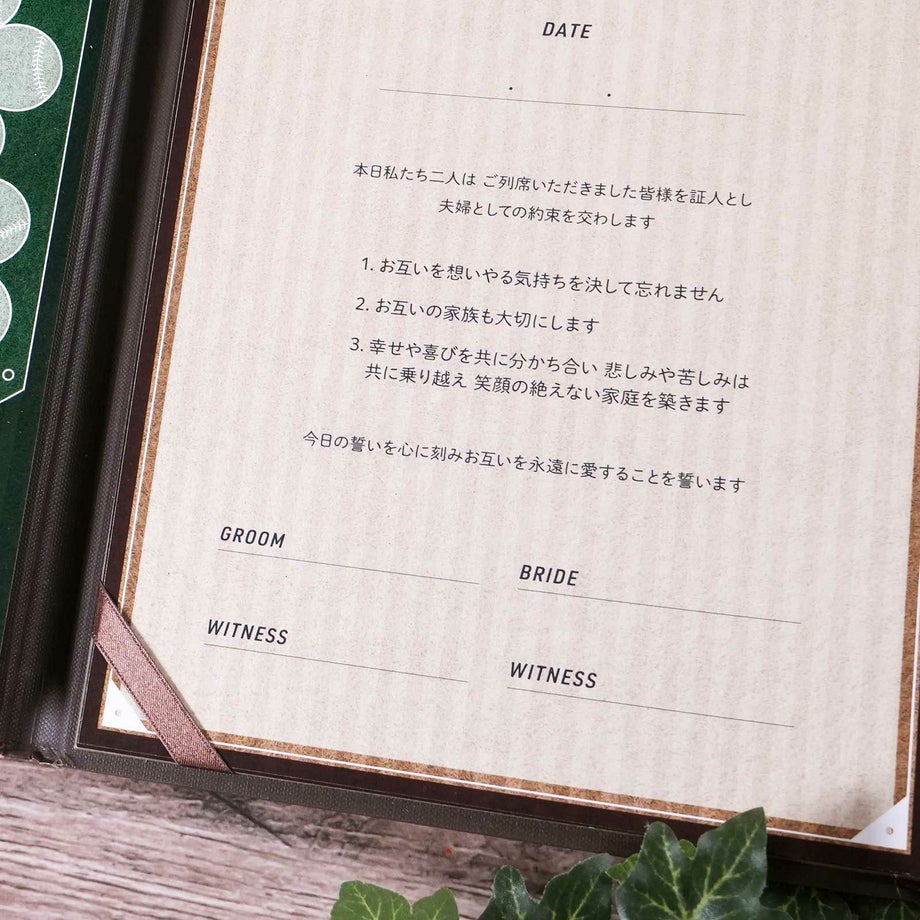 DATE
. .
本日私たち二人は ご列席いただきました皆様を証人とし
夫婦としての約束を交わします
1. お互いを想いやる気持ちを決して忘れません
2. お互いの家族も大切にします
3. 幸せや喜びを共に分かち合い 悲しみや苦しみは
共に乗り越え 笑顔の絶えない家庭を築きます
今日の誓いを心に刻みお互いを永遠に愛することを誓います
GROOM
BRIDE
WITNESS
WITNESS